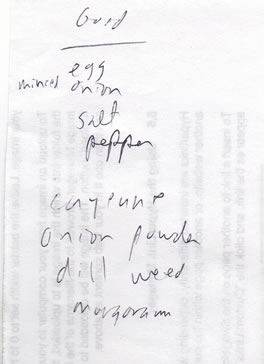 Good
egg
minced onion
salt
pepper
cayenne
onion powder
dill weed
margoram